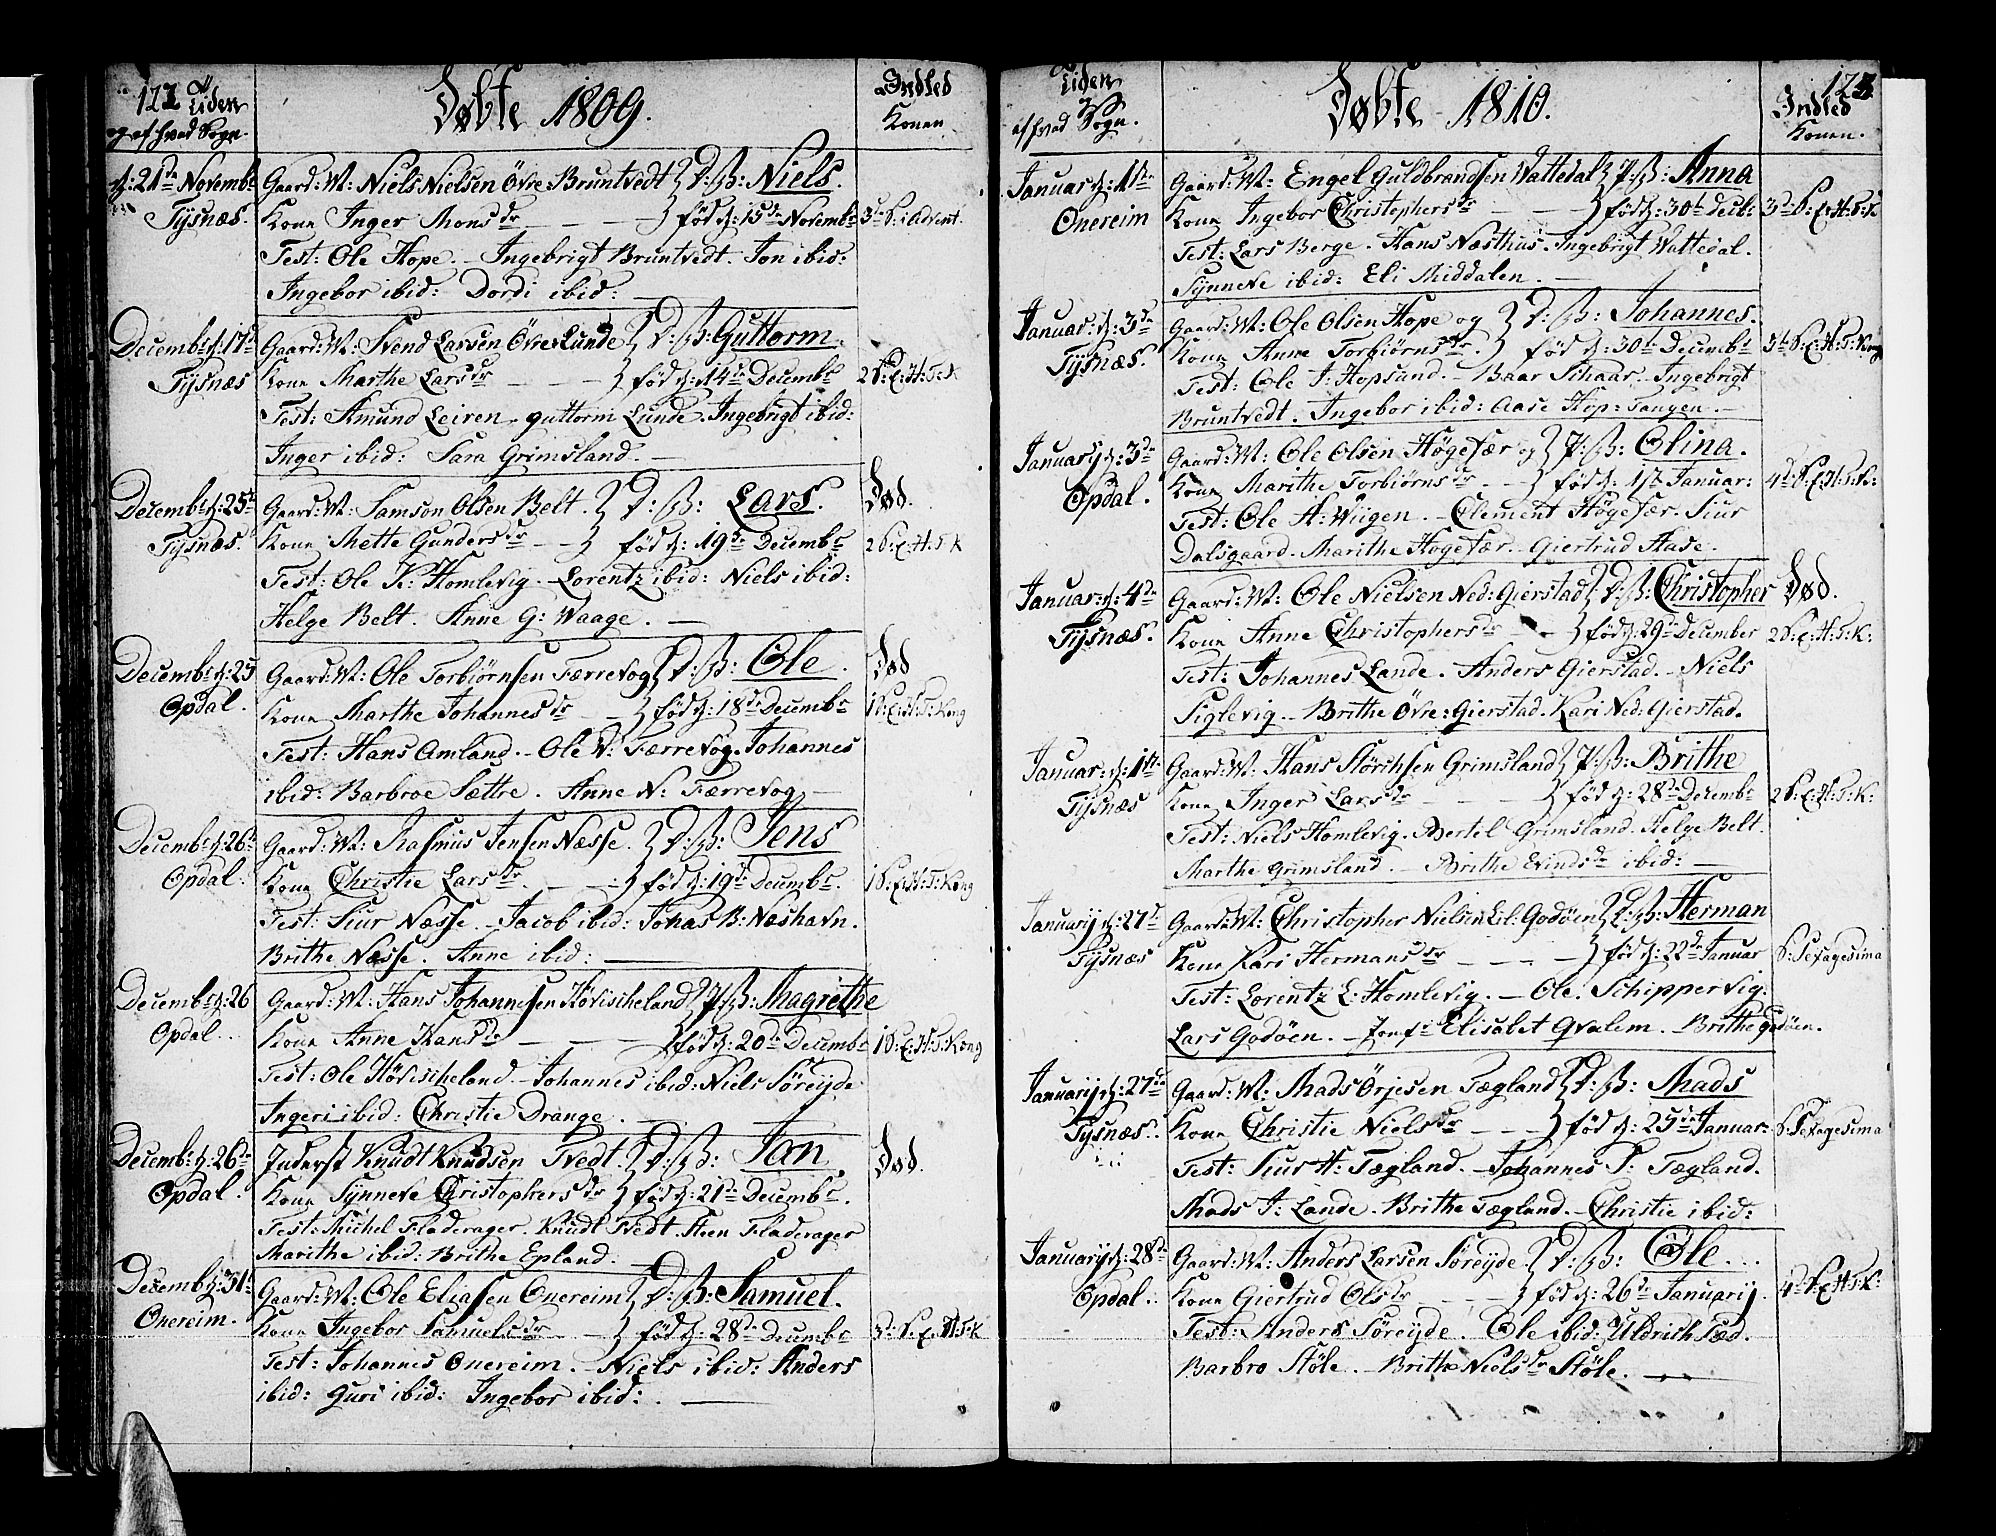 122
Tiden
og af hvad Sogn.
Døbte 1809.
Indled
Konen
d: 21de Novembr
Tysnæs.
Gaard: M: Niels Nielsen Övre Bruntvedt D: B: Niels.
Kone Inger Mons dr - - - fød d: 15de Novembr
3de S: i Advent.
Test: Ole Hope. - Ingebrigt Bruntvedt. Jon ibid:
Ingebor ibid: Dordi ibid: -
Decembr d: 17de
Tysnæs
Gaard: M: Svend Larsen Övre Lunde D: B: Guttorm.
Kone Marthe Lars dr - - - fød d: 14de Decembr
2 S: E: H: 3: K
Test: Amund Leiren. guttorm Lunde. Ingebrigt ibid:
Inger ibid: Sara Grimsland. -
Decembr d: 25de
Tysnæs.
Gaard: M: Samson Olsen Belt. D: B: Lars.
Død.
Kone Mette Gunders dr - - fød d: 19de Decembr
2 S: E: H: 3: K
Test: Ole K: Homlevig. Lorentz ibid: Niels ibid:
Helge Belt. Anne G: Waage. -
Decembr d: 25
Opdal.
Gaard: M: Ole Torbiörnsen Færrevog D: B: Ole.
Død
Kone Marthe Johannes dr - fød d: 18de Decembr
1 S: E: H: 3: Kong
Test: Hans Amland. Ole V: Færrevog. Johannes
ibid: Barbroe Sættre. Anne N: Færrevog -
Decembr d: 26de
Opdal.
Gaard: M: Rasmus Jensen Næsse. D: B: Jens
Kone Christie Lars dr. - - fød d: 19de Decembr.
1 S: E: H: 3: Kong
Test: Siur Næsse. - Jacob ibid: Jonas B: Næshavn.
Brithe Næsse. Anne ibid: -
Decembr d: 26
Opdal.
Gaard: M: Hans Johannesen Hövischeland P: B: Magrethe
Kone Anne Hans dr - - - fød d: 20de Decembr
1 S: E: H: 3: Kong
Test: Ole Hövischeland. Johannes ibid: Niels Söreyde
Ingeri ibid: Christie Drange. -
Decembr d: 26de
Opdal.
Inderst Knudt Knudsen Tvedt. D: B: Jon.
Død.
Kone Synneve Christophers dr fød d: 21de Decembr.
Test: Michel Fladerager. Knudt Tvedt. Steen Fladerager
Marithe ibid: Brithe Epland. -
Decemb d: 31te
Onereim.
Gaard: M: Ole Eliasen Onereim D: B: Samuel.
Kone Ingebor Samuels dr - - fød d: 28de Decembr
3: S: E: H: 3: K
Test: Johannes Onereim. - Niels ibid: Anders
ibid: Guri ibid: Ingebor ibid: -
Tiden
af hvad Sogn.
Døbte 1810.
123
Indled
Konen.
Januar d: 1ste
Onereim
Gaard: M: Engel Guldbrandsen Vattedal P: B: Anna
Kone Ingebor Christophers dr - - fød d: 30te Decb:
3de S: E: H: 3: K
Test: Lars Berge. Hans Næsthus. Ingebrigt Vattedal.
Synneve ibid: Eli Middalen. -
Januar: d: 3de
Tysnæs.
Gaard: M: Ole Olsen Hope og D: B: Johannes.
Kone Anne Torbiörns dr. fød d: 30te Decembr
3de S: E: H: 3: Kong
Test: Ole J: Hopsund. - Baar Schaar. Ingebrigt
Bruntvedt. Ingebor ibid: Aase Hop: Tangen. -
Januarij d: 3de
Opdal.
Gaard: M: Ole Olsen Högefær og P: B: Olina.
Kone Marithe Torbiörns dr - - fød d: 1ste Januar:
4de S: E: H: 3: K:
Test: Ole H: Wiigen. - Clement Högefær. Siur
Dalsgaard. Marithe Högefær. Giertrud Aase.
Januar d: 4de
Tysnæs.
Gaard: M: Ole Nielsen Ned: Gierstad D: B: Christopher
Død.
Kone Anne Christophers dr - fød d: 29de December
2 S: E: H: 3: K:
Test: Johannes Lande. Anders Gierstad. - Niels
Siglevig. - Brithe Övre: Gierstad. Kari Ned: Gierstad.
Januar: d: 1ste
Tysnæs
Gaard: M: Hans Störchsen Grimsland P: B: Brithe
Kone Inger Lars dr - - - fød d: 28de Decembr
2 S: E: H: 3: K:
Test: Niels Homlevig. Bertel Grimsland. Helge Belt.
Marthe Grimsland. - Brithe Evinds dr ibid: -
Januarij d: 27de
Tysnæs
Gaard: M: Christopher Nielsen Lil: Godöen D: B: Herman
Kone Kari Hermans dr - - - fød d: 22de Januar
S: Sexagesima
Test: Lorentz L: Homlevig. - Ole. Schippervig.
Lars Godöen. - Jomfr Elisabet Qvalem. - Brithe Godöen.
Januarij d: 27de
Tysnæs.
Gaard: M: Mads Örjesen Tægland D: B: Mads
Kone Christie Niels dr - - - fød d: 25de Januar:
S: Sexagesima
Test: Siur H: Tægland. - Johannes S: Tægland.
Mads J: Lande. Brithe Tægland. - Christie ibid:
Januarij d: 28de
Opdal.
Gaard: M: Anders Larsen Söreyde D: B: Ole.
Kone Giertrud Ols dr - - fød d: 26de Januarij
4de S: E: H: 3: K:
Test: Anders Söreyde. Ole ibid: Uldrich Sæd.
Barbro Stöle. - Brithe Niels dr Stöle. -